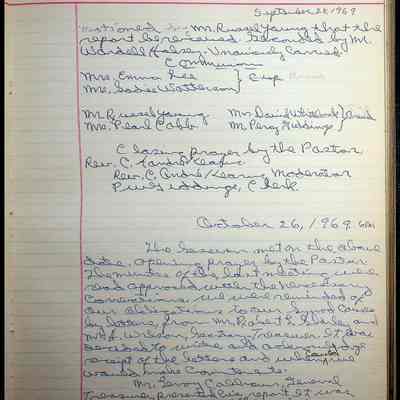 September 28, 1969
motioned by Mr. Russel Young that the
report be received. Seconded by Mr.
Wardell Halsey. Unanimously Carried.
Communion
Mrs. Emma Lee } Cup
Mrs. Sadie Watterson
Mr. Russel Young Mr. David Whitlock } Bread
Mrs. Pearl Cobb Mr. Percy Giddings
Closing prayer by the Pastor
Rev. C. André Kearns
Rev. C. André Kearns, Moderator
P. W. Giddings, Clerk
October 26, 1969
The Session met on the above
date. Opening prayer by the Pastor.
The minutes of the last meeting were
read approved with the necessary
corrections. We were reminded of
our obligations to our good cause
by letters, from Mr. Robert L.
Mr. A. Wilson, Treasurer. It was
decided to write and acknowledge
receipt of the letters and when we could
would make
Mr. Leroy Calhoun, General
Treasurer presented his report. It was